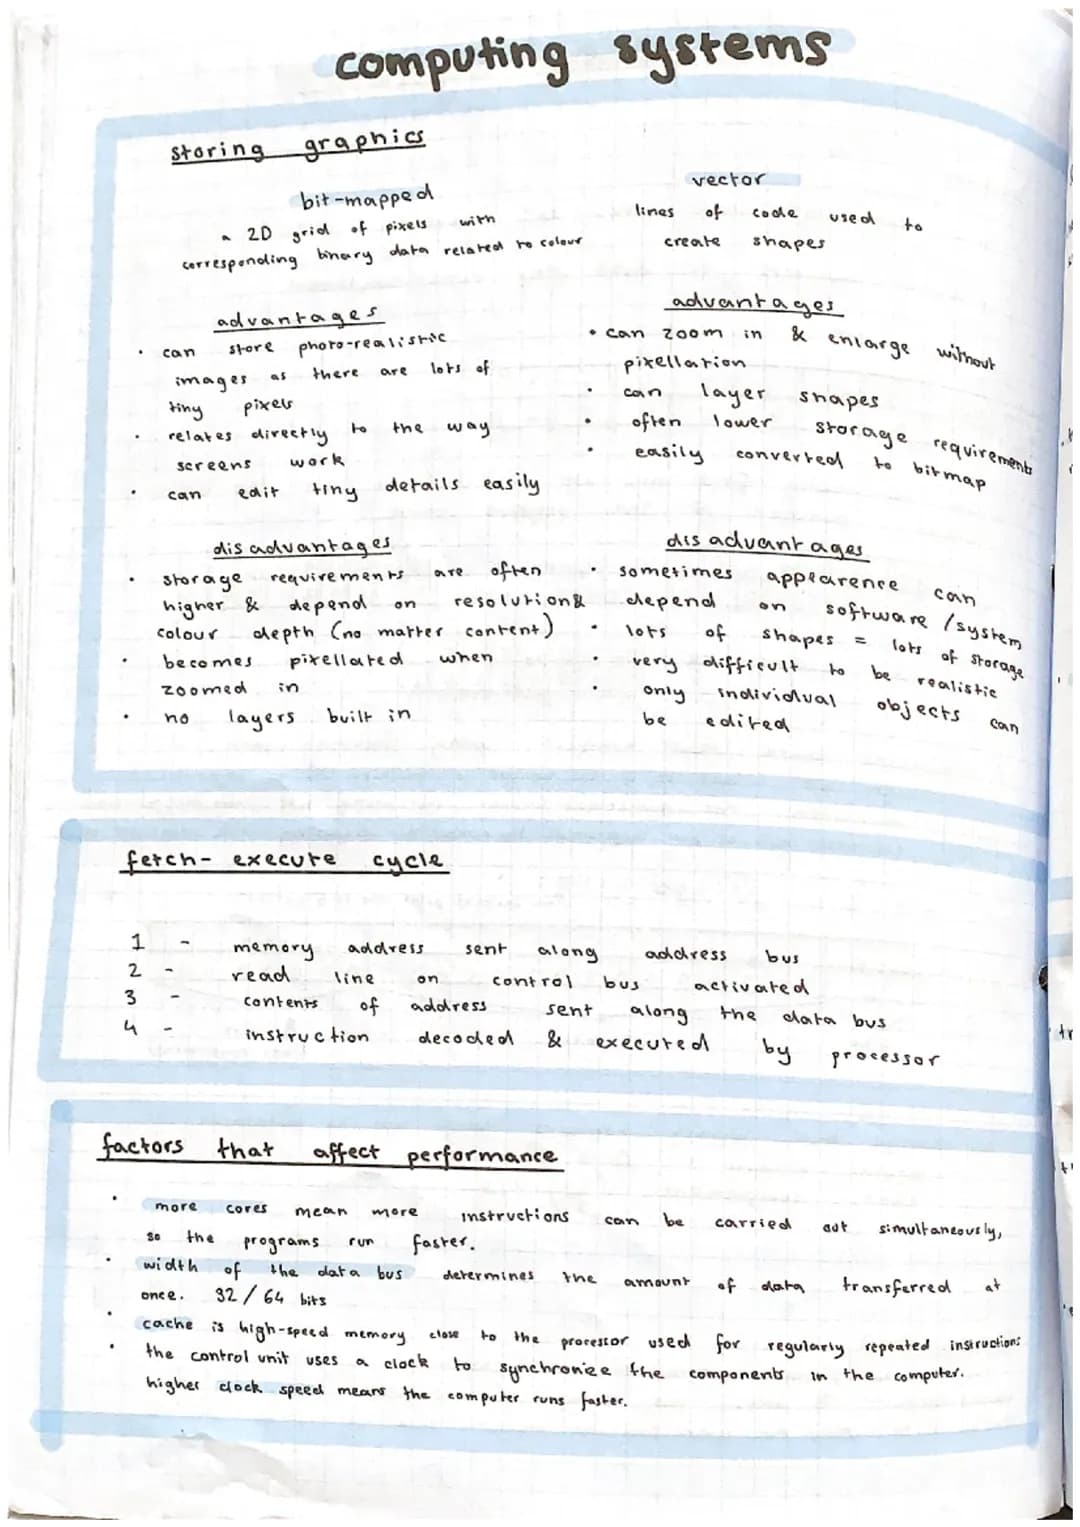 computing systems
storing graphics
bit-mapped
a 2D grid of pixels with
corresponding binary data related to colour
advantages
• can store photo-realistic
images as there are lots of
tiny pixels
• relates directly to the way
screens work
• can edit tiny details easily
disadvantages
• storage requirements are often
higher & depend on resolution &
colour depth (no matter content)
• becomes pixellated when
zoomed in
• no layers built in
vector
lines of code used to
create shapes
advantages
• can zoom in & enlarge without
pixellation
• can layer shapes
• often lower storage requirements
• easily converted to bitmap
disadvantages
• sometimes appearence can
depend on software/system
• lots of shapes = lots of storage
• very difficult to be realistic
• only individual objects can
be edited
fetch-execute cycle
1 - memory address sent along address bus
2 - read line on control bus activated
3 - contents of address sent along the data bus
4 - instruction decoded & executed by processor
factors that affect performance
• more cores mean more instructions can be carried out simultaneously,
so the programs run faster.
• width of the data bus determines the amount of data transferred at
once. 32/64 bits
• cache is high-speed memory close to the processor used for regularly repeated instructions
• the control unit uses a clock to synchronize the components in the computer.
higher clock speed means the computer runs faster.